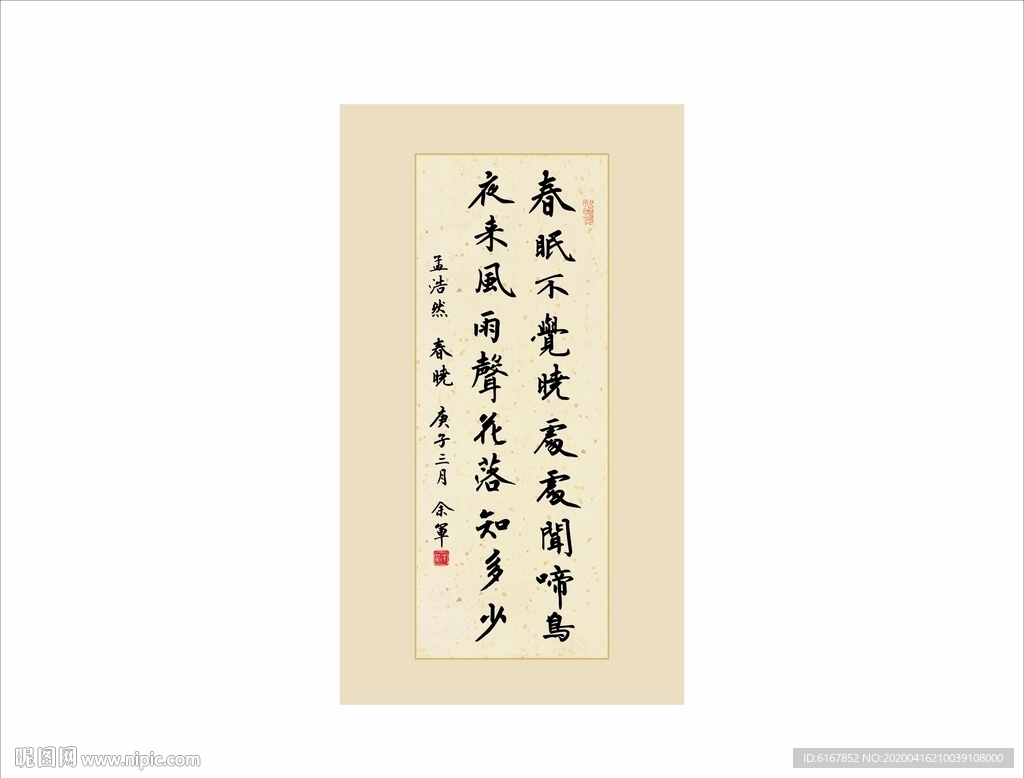 春眠不覺曉處處聞啼鳥
夜来風雨聲花落知多少
孟浩然 春曉 庚子三月 余軍
昵图网 www.nipic.com
ID:6167852 NO:20200416210039108000